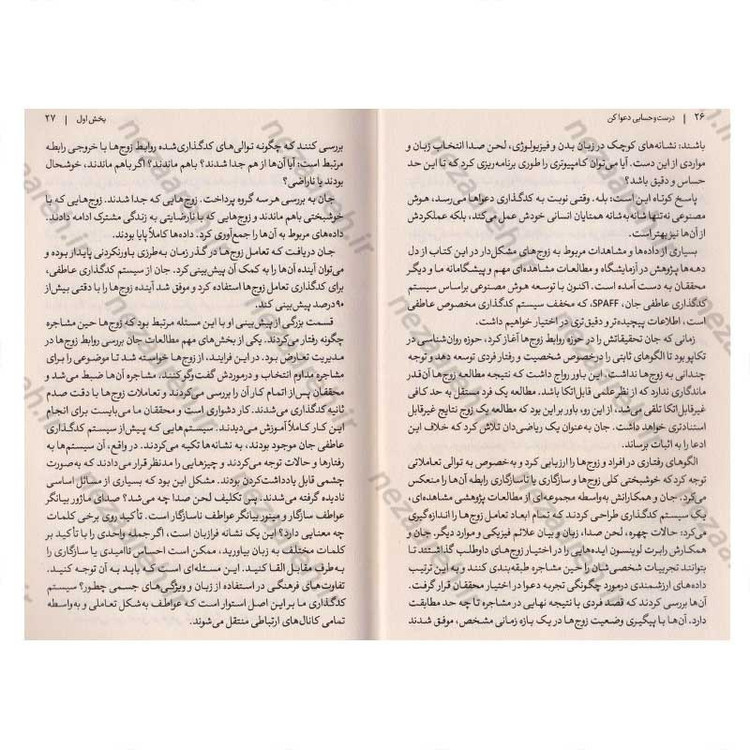 ۲۶ | درست‌وحسابی دعوا کن
باشند: نشانه‌های کوچک در زبان بدن و فیزیولوژی، لحن صدا انتخاب زبان و
مواردی از این دست. آیا می‌توان کامپیوتری را طوری برنامه‌ریزی کرد که تا این حد
حساس و دقیق باشد؟
پاسخ کوتاه این است: بله. وقتی نوبت به کدگذاری دعواها می‌رسد، هوش
مصنوعی نه‌تنها شانه‌به‌شانه همتایان انسانی خودش عمل می‌کند، بلکه عملکردش
از آن‌ها نیز بهتر است.
بسیاری از داده‌ها و مشاهدات مربوط به زوج‌های مشکل‌دار در این کتاب از دل
دهه‌ها پژوهش در آزمایشگاه و مطالعات مشاهده‌ای مهم و پیشگامانه ما و دیگر
محققان به دست آمده است. اکنون با توسعه هوش مصنوعی براساس سیستم
کدگذاری عاطفی جان، SPAFF، که مخفف سیستم کدگذاری مخصوص عاطفی
است، اطلاعات پیچیده‌تر و دقیق‌تری در اختیار خواهیم داشت.
زمانی که جان تحقیقاتش را در حوزه روابط زوج‌ها آغاز کرد، حوزه روان‌شناسی در
تکاپو بود تا الگوهای ثابتی را درخصوص شخصیت و رفتار فردی توسعه دهد و توجه
چندانی به زوج‌ها نداشت. این باور رواج داشت که نتیجه مطالعه زوج‌ها آن‌قدر
ماندگاری ندارد که از نظر علمی قابل‌اتکا باشد. مطالعه یک فرد مستقل به حد کافی
غیرقابل‌اتکا تلقی می‌شد، از این رو، باور بر این بود که مطالعه یک زوج نتایج غیرقابل
استنادتری خواهد داشت. جان به‌عنوان یک ریاضی‌دان تلاش کرد که خلاف این
ادعا را به اثبات برساند.
الگوهای رفتاری در افراد و زوج‌ها را ارزیابی کرد و به‌خصوص به توالی تعاملاتی
توجه کرد که خوشبختی کلی زوج‌ها و سازگاری یا ناسازگاری رابطه آن‌ها را منعکس
می‌کرد. جان و همکارانش به‌واسطه مجموعه‌ای از مطالعات پژوهشی مشاهده‌ای،
یک سیستم کدگذاری طراحی کردند که تمام ابعاد تعامل زوج‌ها را اندازه‌گیری
می‌کرد: حالات چهره، لحن صدا، زبان و بیان علائم فیزیکی و موارد دیگر. جان و
همکارش رابرت لوینسون ایده‌هایی را در اختیار زوج‌های داوطلب گذاشتند تا
بتوانند تجربیات شخصی‌شان را حین مشاجره طبقه‌بندی کنند و به این ترتیب
داده‌های ارزشمندی درمورد چگونگی تجربه دعوا در اختیار محققان قرار گرفت.
آن‌ها بررسی کردند که قصد فردی با نتیجه نهایی در مشاجره تا چه حد مطابقت
دارد. آن‌ها با پیگیری وضعیت زوج‌ها در یک بازه زمانی مشخص، موفق شدند
بخش اول | ۲۷
بررسی کنند که چگونه توالی‌های کدگذاری‌شده روابط زوج‌ها با خروجی رابطه
مرتبط است: آیا آن‌ها از هم جدا شدند؟ باهم ماندند؟ اگر باهم ماندند، خوشحال
بودند یا ناراضی؟
جان به بررسی هر سه گروه پرداخت. زوج‌هایی که جدا شدند. زوج‌هایی که با
خوشبختی باهم ماندند و زوج‌هایی که با نارضایتی به زندگی مشترک ادامه دادند.
داده‌های مربوط به آن‌ها را جمع‌آوری کرد. داده‌ها کاملاً پایا بودند.
جان دریافت که تعامل زوج‌ها در گذر زمان به‌طرزی باورنکردنی پایدار بوده و
می‌توان آینده آن‌ها را به کمک آن پیش‌بینی کرد. جان از سیستم کدگذاری عاطفی،
برای کدگذاری تعامل زوج‌ها استفاده کرد و موفق شد آینده زوج‌ها را با دقتی بیش از
۹۰ درصد پیش‌بینی کند.
قسمت بزرگی از پیش‌بینی او با این مسئله مرتبط بود که زوج‌ها حین مشاجره
چگونه رفتار می‌کردند. یکی از بخش‌های مهم مطالعات جان بررسی روابط زوج‌ها در
مدیریت تعارض بود. در این فرایند، از زوج‌ها خواسته شد تا موضوعی را برای
مشاجره مداوم انتخاب و درموردش گفت‌وگو کنند. مشاجره آن‌ها ضبط می‌شد و
محققان پس از اتمام کار آن را بررسی می‌کردند و تعاملات زوج‌ها با دقت صدم
ثانیه کدگذاری می‌کردند. کار دشواری است و محققان ما می‌بایست برای انجام
این کار کاملاً آموزش می‌دیدند. سیستم‌هایی که پیش از سیستم کدگذاری
عاطفی جان موجود بودند، به نشانه‌ها تکیه می‌کردند. در واقع، آن سیستم‌ها به
رفتارها و حالات توجه می‌کردند و چیزهایی را مدنظر قرار می‌دادند که به‌صورت
چشمی قابل یادداشت‌کردن بودند. مشکل این بود که بسیاری از مسائل اساسی
نادیده گرفته می‌شدند. پس تکلیف لحن صدا چه می‌شد؟ صدای ماژور بیانگر
عواطف سازگار و مینور بیانگر عواطف ناسازگار است. تأکید روی برخی کلمات
چه معنایی دارد؟ این یک نشانه فرازبان است، اگر جمله واحدی را با تأکید بر
کلمات مختلف به زبان بیاورید، ممکن است احساس ناامیدی یا سازگاری را
به‌طرف مقابل القا کنید. این مسئله‌ای است که باید به آن توجه کنید.
تفاوت‌های فرهنگی در استفاده از زبان و ویژگی‌های جسمی چطور؟ سیستم
کدگذاری ما بر این اصل استوار است که عواطف به‌شکل تعاملی و به‌واسطه
تمامی کانال‌های ارتباطی منتقل می‌شوند.
nezaareh.ir